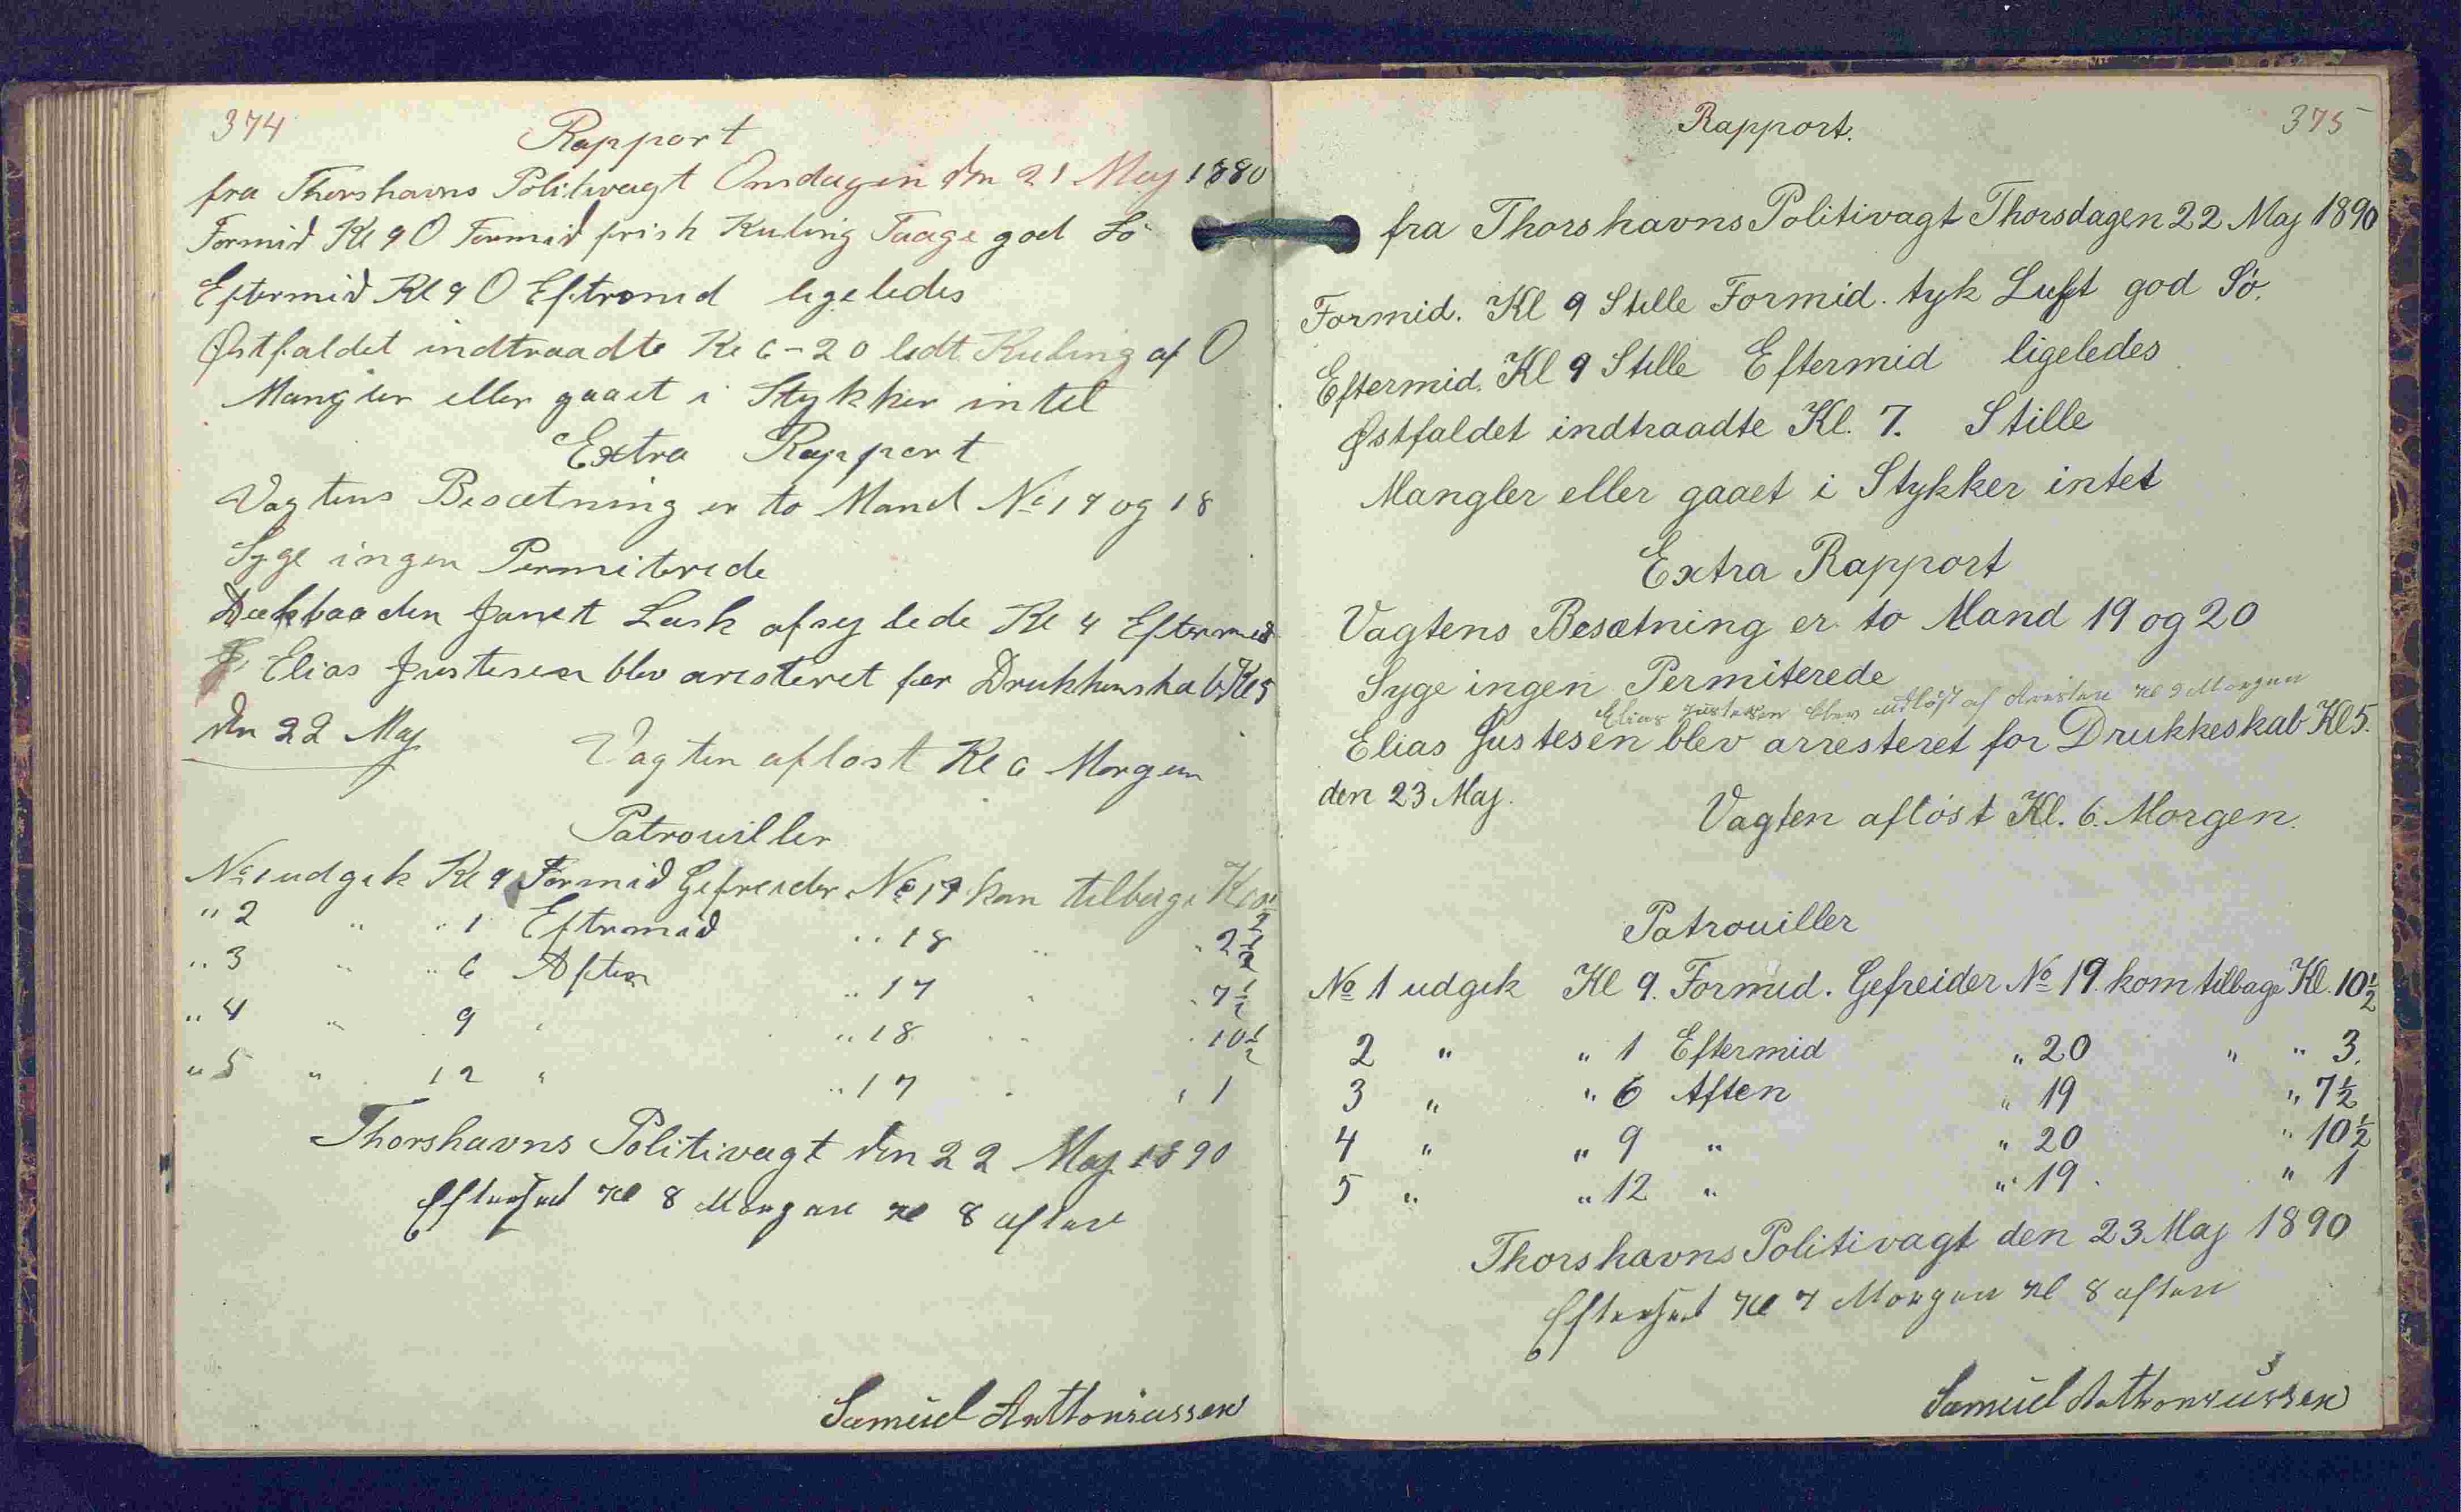 374
Rapport
fra Thorshavns Politivagt Onsdagen den 21 May 1880
Formid Kl 9 O Formid frisk Kuling Taage god Sö
Eftermid Kl 9 O Eftrmid ligeledes
Østfaldet indtraadte Kl 6-20 ledt Kuling af O
Mangler eller gaaet i Stykker intet
Extra Rapport
Vagtens Besætning er to Mand No 17 og 18
Syge ingen Permiterede
Dækbaaden Janet Lask afsejlede Kl 4 Eftermid
Elias Justesen blev aresteret for Drukkenskab Kl 5
den 22 Maj Vagten aflöst Kl 6 Morgen
Patrouiller
No 1 udgik Kl 9 Formid Gefreider No 17 kom tilbage Kl 10½
" 2 " " 1 Eftermid " 18 " " 2½
" 3 " " 6 Aften " 17 " " 7½
" 4 " 9 " " 18 " " 10½
" 5 " 12 " " 17 " " 1
Thorshavns Politivagt den 22 Maj 1890
Efterset Kl 8 Morgen Kl 8 aften
Samuel Anthoniussen
375
Rapport.
fra Thorshavns Politivagt Thorsdagen 22 Maj 1890
Formid. Kl 9 Stille Formid. tyk Luft god Sö.
Eftermid. Kl 9 Stille Eftermid ligeledes
Østfaldet indtraadte Kl. 7. Stille
Mangler eller gaaet i Stykker intet
Extra Rapport
Vagtens Besætning er to Mand 19 og 20
Syge ingen Permiterede
Elias Justesen blev udlöst af Aresten Kl 9 Morgen
Elias Justesen blev arresteret for Drukkeskab Kl 5.
den 23 Maj. Vagten aflöst Kl. 6. Morgen.
Patrouiller
No 1 udgik Kl 9. Formid. Gefreider No 19. kom tilbage Kl. 10½
2 " " 1 Eftermid " 20 " " 3.
3 " " 6 Aften " 19 " 7½
4 " " 9 " " 20 " 10½
5 " " 12 " " 19. " 1
Thorshavns Politivagt den 23 Maj 1890
Efterset Kl 7 Morgen Kl 8 aften
Samuel Anthoniussen